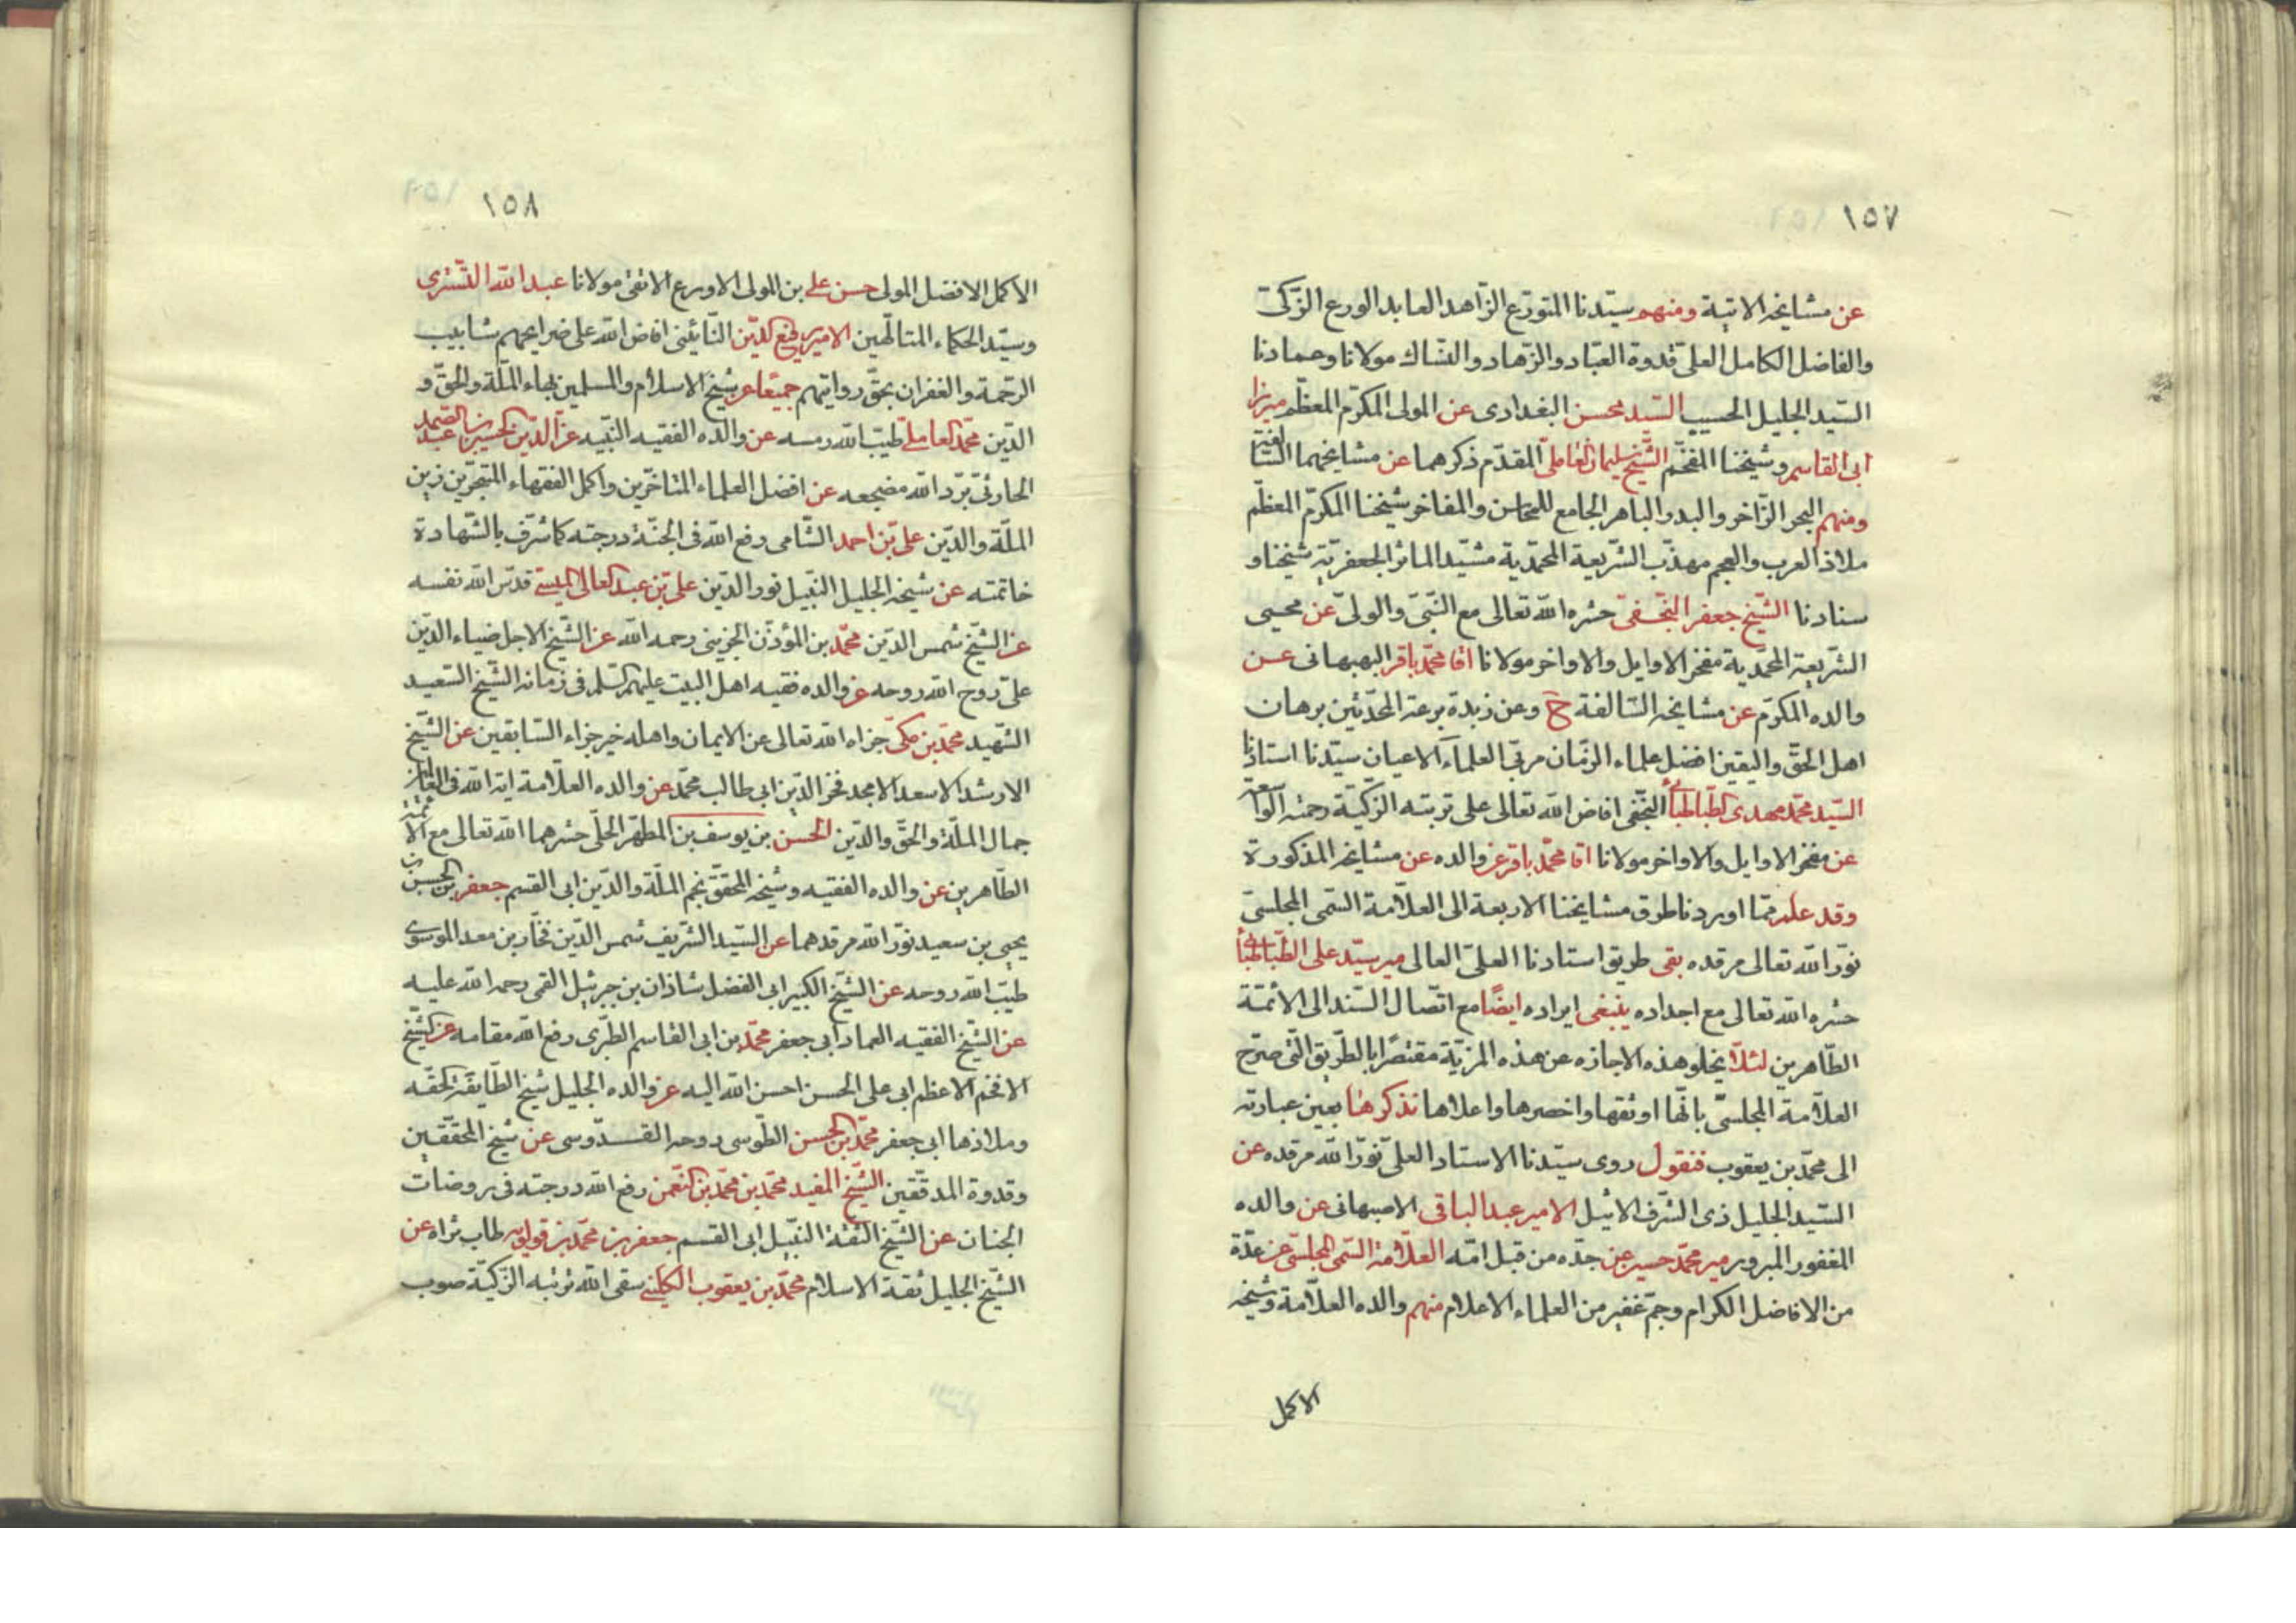 ١٥٧
عن مشايخه الاتية ومنهم سيّدنا المتورّع الزّاهد العابد الورع الزّكىّ
والفاضل الكامل العلىّ قدوة العبّاد والزّهاد والنّساك مولانا وعمادنا
السّيد الجليل الحسيب السّيد محسن البغدادى عن المولى المكرّم المعظّم ميرزا
ابى القاسم وشيخنا المفخّم الشّيخ سليمان العاملىّ المقدّم ذكرهما عن مشايخهما السّالفة
ومنهم البحر الزّاخر والبدر الباهر الجامع للمحاسن والمفاخر شيخنا المكرّم المعظّم
ملاذ العرب والعجم مهذّب الشّريعة المحمّدية مشيّد الماثر الجعفريّة شيخنا و
سنادنا الشّيخ جعفر النّجفىّ حشره الله تعالى مع النّبىّ والولىّ عن محيى
الشّريعة المحمّدية مفخر الاوايل والاواخر مولانا اقا محمّد باقر البهبهانى عن
والده المكرّم عن مشايخه السّالفة ح وعن زبدة برعة المحدّثين برهان
اهل الحقّ واليقين افضل علماء الزّمان مربّى العلماء الاعيان سيّدنا استاذنا
السّيد محمّد مهدى الطّباطبائى النّجفى افاض الله تعالى على تربته الزّكيّة رحمته الواسعة
عن مفخر الاوايل والاواخر مولانا اقا محمّد باقر عن والده عن مشايخه المذكورة
وقد علم ممّا اوردنا طرق مشايخنا الاربعة الى العلاّمة السّمى المجلسىّ
نوّر الله تعالى مرقده بقى طريق استادنا العلىّ العالى مير سيّد على الطّباطبائى
حشره الله تعالى مع اجداده ينبغى ايراده ايضًا مع اتّصال السّند الى الأئمّة
الطّاهرين لئلاّ يخلو هذه الاجازه عن هذه المزيّة مقتصرًا بالطّريق الّتى صرّح
العلاّمة المجلسىّ بانّها اوثقها واخصرها واعلاها نذكرها بعين عبارته
الى محمّد بن يعقوب فنقول روى سيّدنا الاستاد العلىّ نوّر الله مرقده عن
السّيد الجليل ذى الشّرف الاثيل الامير عبد الباقى الاصبهانى عن والده
المغفور المبرور مير محمّد حسين عن جدّه من قبل امّه العلاّمة السّمى المجلسىّ عن عدّة
من الافاضل الكرام وجمّ غفير من العلماء الاعلام منهم والده العلاّمة وشيخه
الاكمل
١٥٨
الاكمل الافضل المولى حسن على بن المولى الاورع الاتقى مولانا عبد الله التّسترى
وسيّد الحكماء المتالّهين الامير رفيع الدّين النّائينى افاض الله على ضرايحهم شابيب
الرّحمة والغفران بحقّ روايتهم جميعًا عن شيخ الاسلام والمسلمين بهاء الملّة والحقّ و
الدّين محمّد العاملى طيّب الله رمسه عن والده الفقيه النّبيه عزّ الدّين الحسين بن عبد الصّمد
الحارثىّ برّد الله مضجعه عن افضل العلماء المتاخّرين واكمل الفقهاء المتبحّرين زين
الملّة والدّين علىّ بن احمد الشّامى رفع الله فى الجنّة درجته كما شرّف بالشّهادة
خاتمته عن شيخه الجليل النّبيل نور الدّين علىّ بن عبد العالى الميسى قدّس الله نفسه
عن الشّيخ شمس الدّين محمّد بن المؤذّن الجزينى رحمه الله عن الشّيخ الاجل ضياء الدّين
علىّ روح الله روحه عن والده فقيه اهل البيت عليهم السّلم فى زمانه الشّيخ السّعيد
الشّهيد محمّد بن مكّى جزاه الله تعالى عن الايمان واهله خير جزاء السّابقين عن الشّيخ
الارشد الاسعد الامجد فخر الدّين ابى طالب محمّد عن والده العلاّمة اية الله فى العالمين
جمال الملّة والحقّ والدّين الحسن بن يوسف بن المطهّر الحلّى حشرهما الله تعالى مع الأئمّة
الطّاهرين عن والده الفقيه وشيخه المحقّق نجم الملّة والدّين ابى القسم جعفر بن الحسن بن
يحيى بن سعيد نوّر الله مرقدهما عن السّيد الشّريف شمس الدّين فخّار بن معد الموسوى
طيّب الله روحه عن الشّيخ الكبير ابى الفضل شاذان بن جبرئيل القمى رحمة الله عليه
عن الشّيخ الفقيه العماد ابى جعفر محمّد بن ابى القاسم الطّبرى رفع الله مقامه عن الشّيخ
الافخم الاعظم ابى على الحسن احسن الله اليه عن والده الجليل شيخ الطّايفة المحقّه
وملاذها ابى جعفر محمّد بن الحسن الطّوسى روحه القسدّوسى عن شيخ المحقّقين
وقدوة المدقّقين الشّيخ المفيد محمّد بن محمّد بن النّعمن رفع الله درجته فى روضات
الجنان عن الشّيخ الثّقة النّبيل ابى القسم جعفر بن محمّد بن قولويه طاب ثراه عن
الشّيخ الجليل ثقة الاسلام محمّد بن يعقوب الكلينى سقى الله تربته الزّكيّة صوب